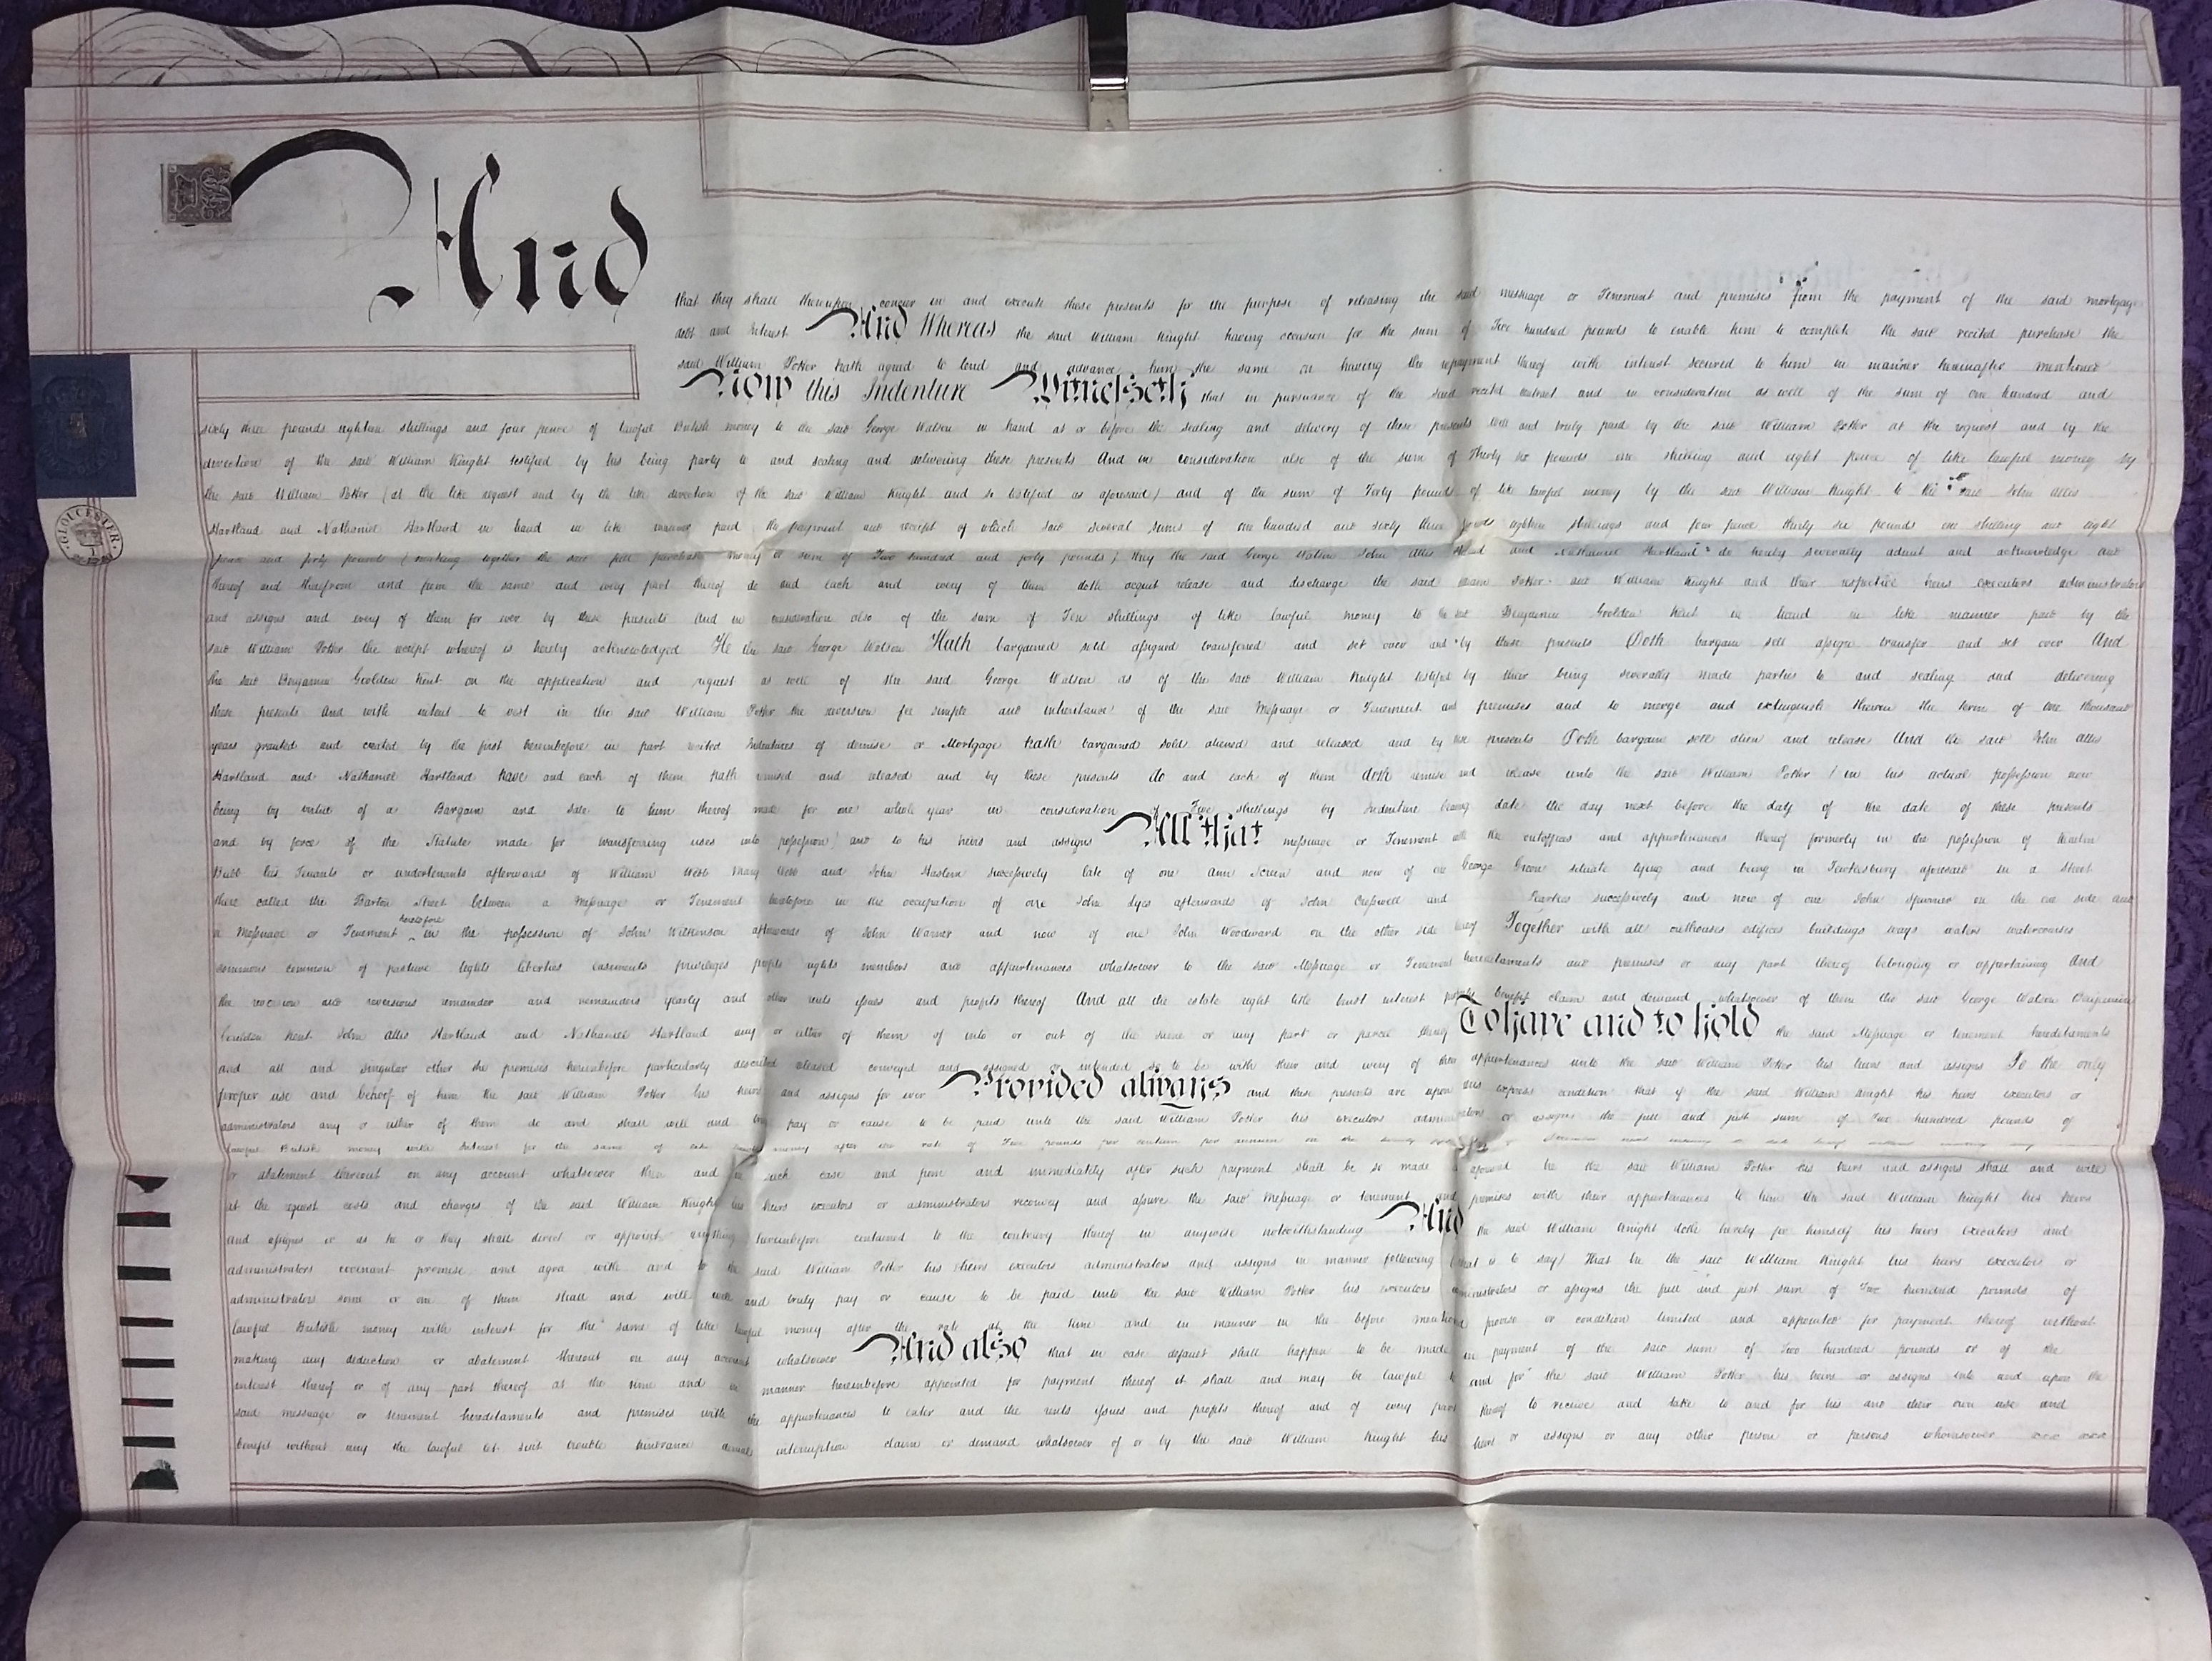 And
that they shall thereupon concur in and execute these presents for the purpose of releasing the said messuage or Tenement and premises from the payment of the said mortgage
debt and Interest And Whereas the said William Knight having occasion for the sum of Two hundred pounds to enable him to complete the said recited purchase the
said William Potter hath agreed to lend and advance him the same on having the repayment thereof with interest secured to him in manner hereinafter mentioned
Now this Indenture Witnesseth that in pursuance of the said recited contract and in consideration as well of the sum of one hundred and
sixty three pounds eighteen shillings and four pence of lawful British money to the said George Watson in hand at or before the sealing and delivery of these presents well and truly paid by the said William Potter at the request and by the
direction of the said William Knight testified by his being party to and sealing and delivering these presents And in consideration also of the sum of Thirty six pounds one shilling and eight pence of like lawful money by
the said William Potter (at the like request and by the like direction of the said William Knight and so testified as aforesaid) and of the sum of Forty pounds of like lawful money by the said William Knight to the said John Allis
GLOUCESTER
Hartland and Nathaniel Hartland in hand in like manner paid the payment and receipt of which said several sums of one hundred and sixty three pounds eighteen shillings and four pence thirty six pounds one shilling and eight
pence and forty pounds (making together the said full purchase money or sum of Two hundred and forty pounds) they the said George Watson John Allis and Nathaniel Hartland do hereby severally admit and acknowledge and
thereof and therefrom and from the same and every part thereof do and each and every of them doth acquit release and discharge the said Potter and William Knight and their respective heirs executors administrators
and assigns and every of them for ever by these presents And in consideration also of the sum of Ten shillings of like lawful money to the said Benjamin Geolden Kent in hand in like manner paid by the
said William Potter the receipt whereof is hereby acknowledged He the said George Watson Hath bargained sold assigned transferred and set over and by these presents Doth bargain sell assign transfer and set over And
the said Benjamin Geolden Kent on the application and request as well of the said George Watson as of the said William Knight testified by their being severally made parties to and sealing and delivering
these presents And with intent to vest in the said William Potter the reversion fee simple and inheritance of the said Messuage or Tenement and premises and to merge and extinguish therein the term of one thousand
years granted and created by the first hereinbefore in part recited Indentures of demise or Mortgage hath bargained sold aliened and released and by these presents Doth bargain sell alien and release And the said John Allis
Hartland and Nathaniel Hartland have and each of them hath remised and released and by these presents do and each of them doth remise and release unto the said William Potter (in his actual possession now
being by virtue of a Bargain and sale to him thereof made for one whole year in consideration of Five shillings by Indenture bearing date the day next before the day of the date of these presents
and by force of the Statute made for transferring uses into possession) and to his heirs and assigns All that messuage or Tenement with the outoffices and appurtenances thereof formerly in the possession of
Bubb his Tenants or undertenants afterwards of William Webb Mary Webb and John Haslem successively late of one Ann and now of one George Green situate lying and being in Tewkesbury aforesaid in a Street
there called the Barton Street between a Messuage or Tenement heretofore in the occupation of one John Dyes afterwards of John Cresswell and successively and now of one John Spurrier on the one side and
a Messuage or Tenement heretofore in the possession of John Wilkinson afterwards of John Warner and now of one John Woodward on the other side thereof Together with all outhouses edifices buildings ways waters watercourses
commons common of pasture lights liberties easements privileges profits rights members and appurtenances whatsoever to the said Messuage or Tenement hereditaments and premises or any part thereof belonging or appertaining And
the reversion and reversions remainder and remainders yearly and other rents issues and profits thereof And all the estate right title trust interest property benefit claim and demand whatsoever of them the said George Watson Benjamin
Geolden Kent John Allis Hartland and Nathaniel Hartland any or either of them of into or out of the same or any part or parcel thereof To have and to hold the said Messuage or tenement hereditaments
and all and singular other the premises hereinbefore particularly described released conveyed and assigned or intended so to be with their and every of their appurtenances unto the said William Potter his heirs and assigns To the only
proper use and behoof of him the said William Potter his heirs and assigns for ever Provided always and these presents are upon this express condition that if the said William Knight his heirs executors or
administrators any or either of them do and shall well and truly pay or cause to be paid unto the said William Potter his executors administrators or assigns the full and just sum of Two hundred pounds of
lawful British money with Interest for the same of like lawful money after the rate of Five pounds per centum per annum on the
or abatement thereout on any account whatsoever then and in such case and from and immediately after such payment shall be so made as aforesaid he the said William Potter his heirs and assigns shall and will
at the request costs and charges of the said William Knight his heirs executors or administrators reconvey and assure the said Messuage or tenement and premises with their appurtenances to him the said William Knight his heirs
and assigns or as he or they shall direct or appoint anything hereinbefore contained to the contrary thereof in anywise notwithstanding And the said William Knight doth hereby for himself his heirs executors and
administrators covenant promise and agree with and to the said William Potter his heirs executors administrators and assigns in manner following (that is to say) That he the said William Knight his heirs executors or
administrators some or one of them shall and will well and truly pay or cause to be paid unto the said William Potter his executors administrators or assigns the full and just sum of Two hundred pounds of
lawful British money with interest for the same of like lawful money after the rate at the time and in manner in the before mentioned proviso or condition limited and appointed for payment thereof without
making any deduction or abatement thereout on any account whatsoever And also that in case default shall happen to be made in payment of the said sum of Two hundred pounds or of the
interest thereof or of any part thereof at the time and in manner hereinbefore appointed for payment thereof it shall and may be lawful to and for the said William Potter his heirs or assigns into and upon the
said messuage or tenement hereditaments and premises with the appurtenances to enter and the rents issues and profits thereof and of every part thereof to receive and take to and for his and their own use and
benefit without any the lawful let suit trouble hinderance denial interruption claim or demand whatsoever of or by the said William Knight his heirs or assigns or any other person or persons whomsoever